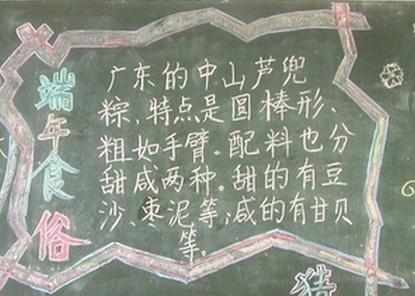 端午食俗
广东的中山芦兜
粽,特点是圆棒形、
粗如手臂.配料也分
甜咸两种.甜的有豆
沙、枣泥等;咸的有甘贝
等.